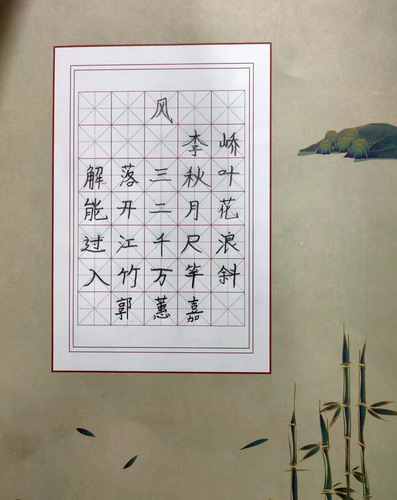 风
李峤
解落三秋叶
能开二月花
过江千尺浪
入竹万竿斜
郭蕙嘉